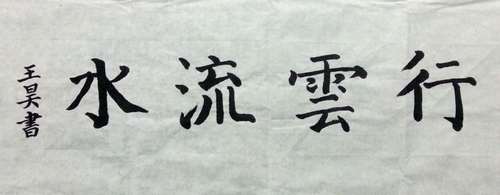 行雲流水
王昊書